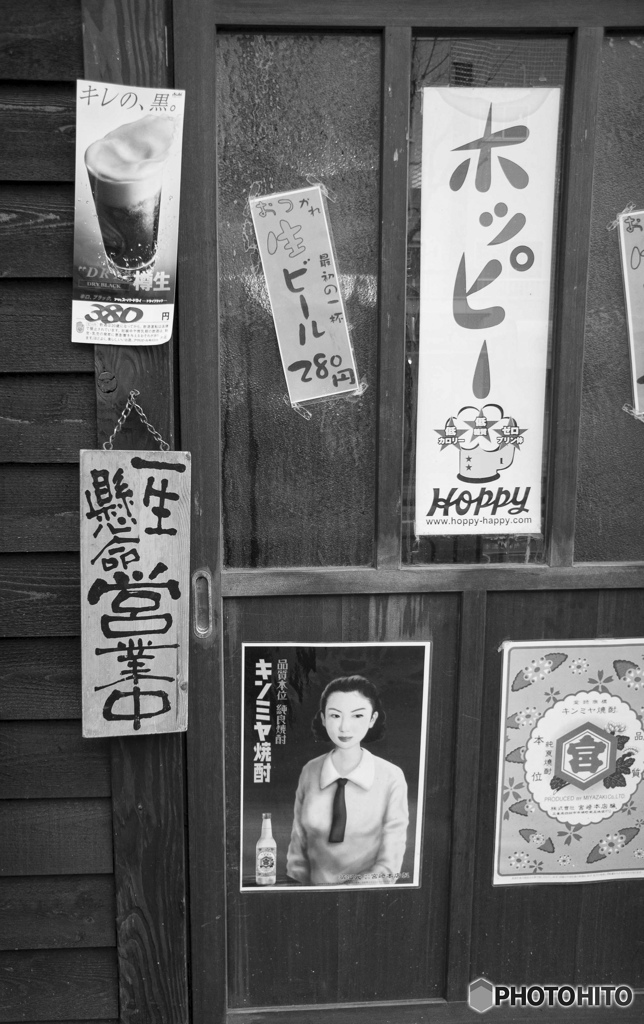 キレの、黒。
DRY BLACK
樽生
380円
おつかれ
生ビール
最初の一杯
280円
ホッピー
低カロリー
低糖質
ゼロプリン体
HOPPY
www.hoppy-happy.com
一生
懸命
営業中
品質本位 純良焼酎
キンミヤ焼酎
宮崎本店
キンミヤ焼酎
本位
品質
純良焼酎
宮
PRODUCED BY MIYAZAKI CO.,LTD.
株式會社 宮崎本店
PHOTOHITO